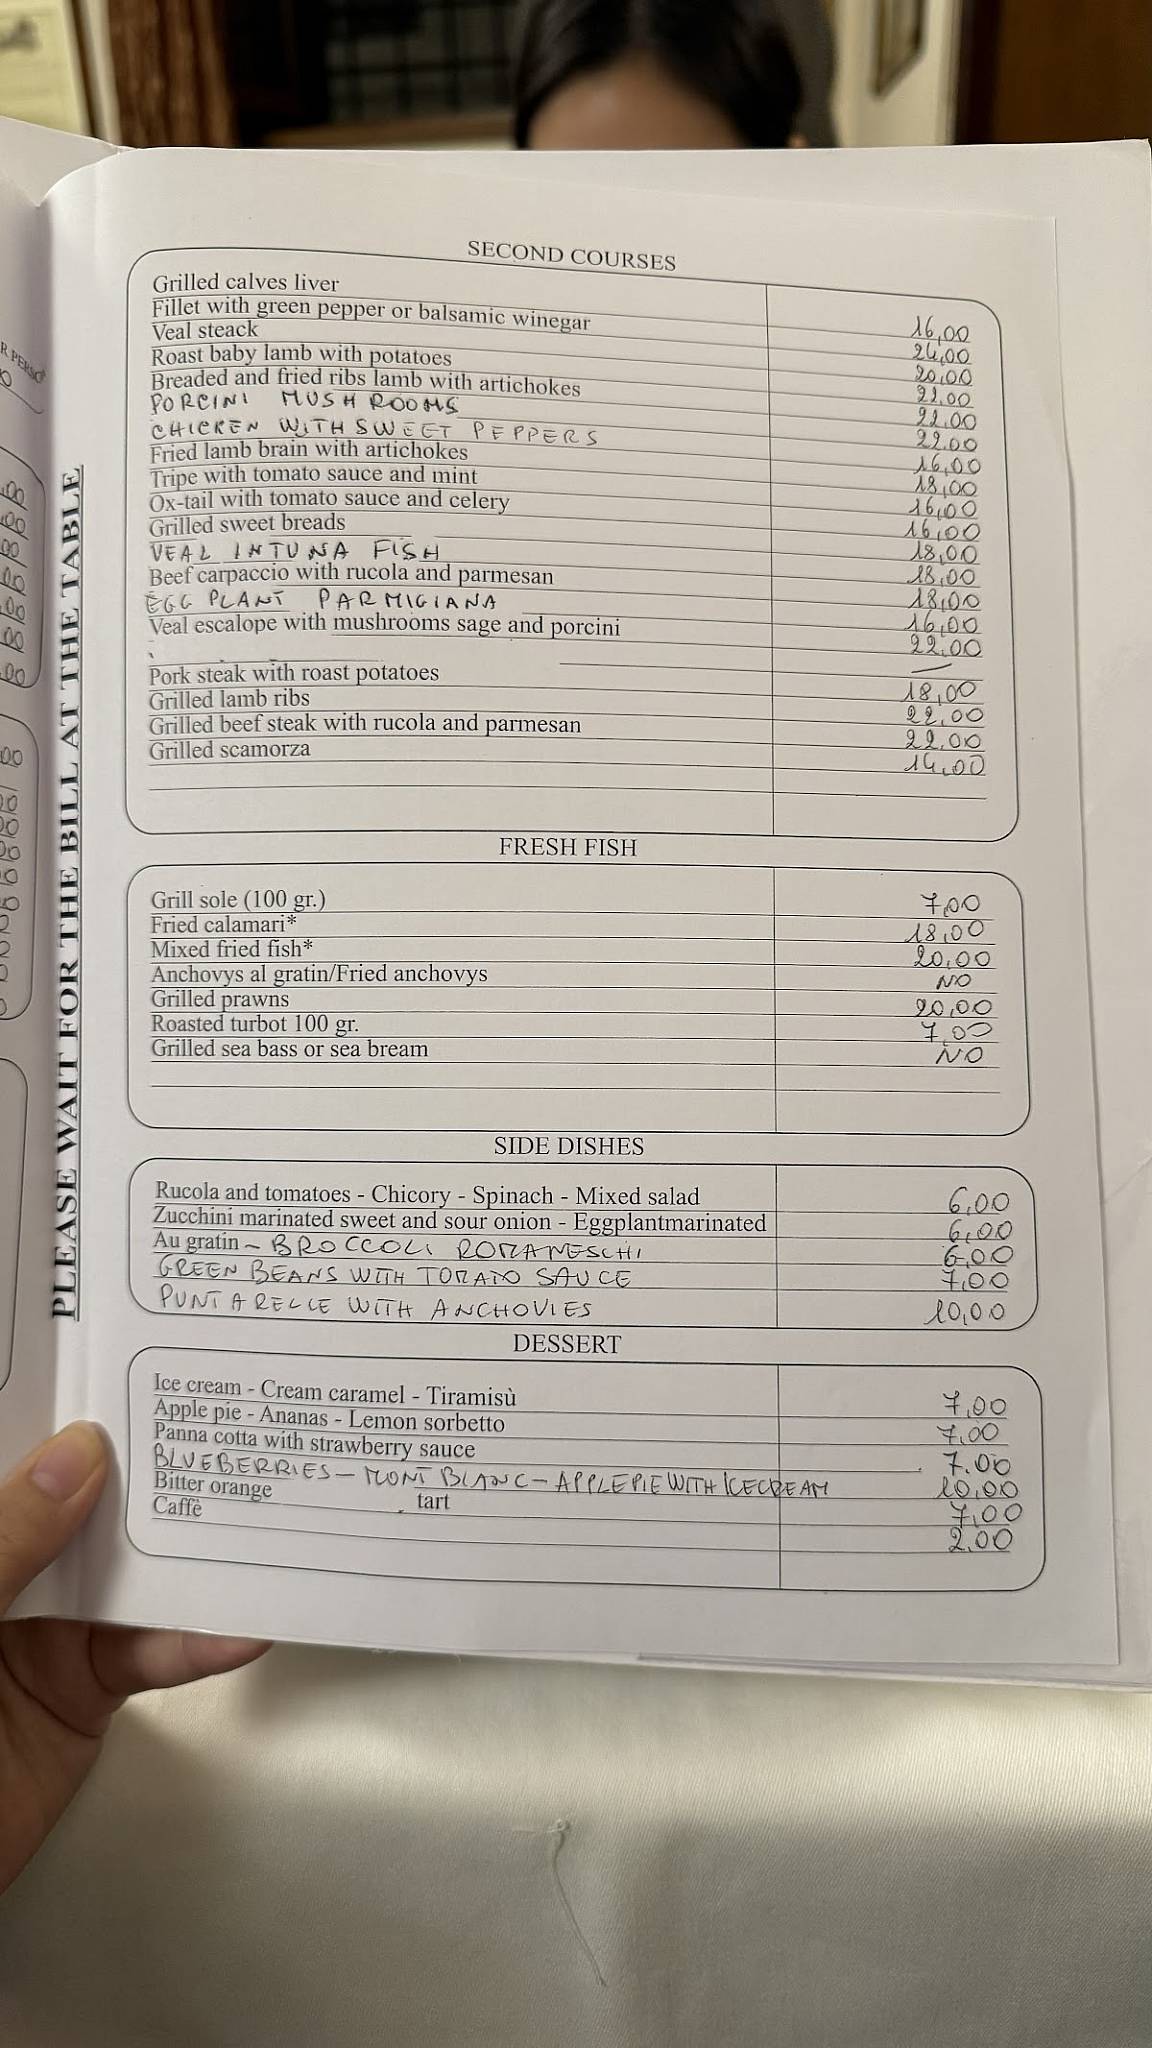 SECOND COURSES
Grilled calves liver 16,00
Fillet with green pepper or balsamic winegar 24,00
Veal steack 20,00
Roast baby lamb with potatoes 22.00
Breaded and fried ribs lamb with artichokes 22.00
PORCINI MUSHROOMS 22.00
CHICKEN WITH SWEET PEPPERS 16,00
Fried lamb brain with artichokes 18,00
Tripe with tomato sauce and mint 16,00
Ox-tail with tomato sauce and celery 16,00
Grilled sweet breads 18,00
VEAL IN TUNA FISH 18,00
Beef carpaccio with rucola and parmesan 18,00
EGG PLANT PARMIGIANA 16,00
Veal escalope with mushrooms sage and porcini 22.00
Pork steak with roast potatoes 18,00
Grilled lamb ribs 22,00
Grilled beef steak with rucola and parmesan 22.00
Grilled scamorza 14,00
FRESH FISH
Grill sole (100 gr.) 7,00
Fried calamari* 18,00
Mixed fried fish* 20,00
Anchovys al gratin/Fried anchovys NO
Grilled prawns 20,00
Roasted turbot 100 gr. 7,00
Grilled sea bass or sea bream NO
SIDE DISHES
Rucola and tomatoes - Chicory - Spinach - Mixed salad 6,00
Zucchini marinated sweet and sour onion - Eggplantmarinated 6,00
Au gratin - BROCCOLI ROMANESCHI 6,00
GREEN BEANS WITH TOMATO SAUCE 7,00
PUNTARELLE WITH ANCHOVIES 10,00
DESSERT
Ice cream - Cream caramel - Tiramisù 7,00
Apple pie - Ananas - Lemon sorbetto 7,00
Panna cotta with strawberry sauce 7.00
BLUEBERRIES - MONT BLANC - APPLEPIE WITH ICECREAM 10,00
Bitter orange tart 7,00
Caffè 2.00
PLEASE WAIT FOR THE BILL AT THE TABLE